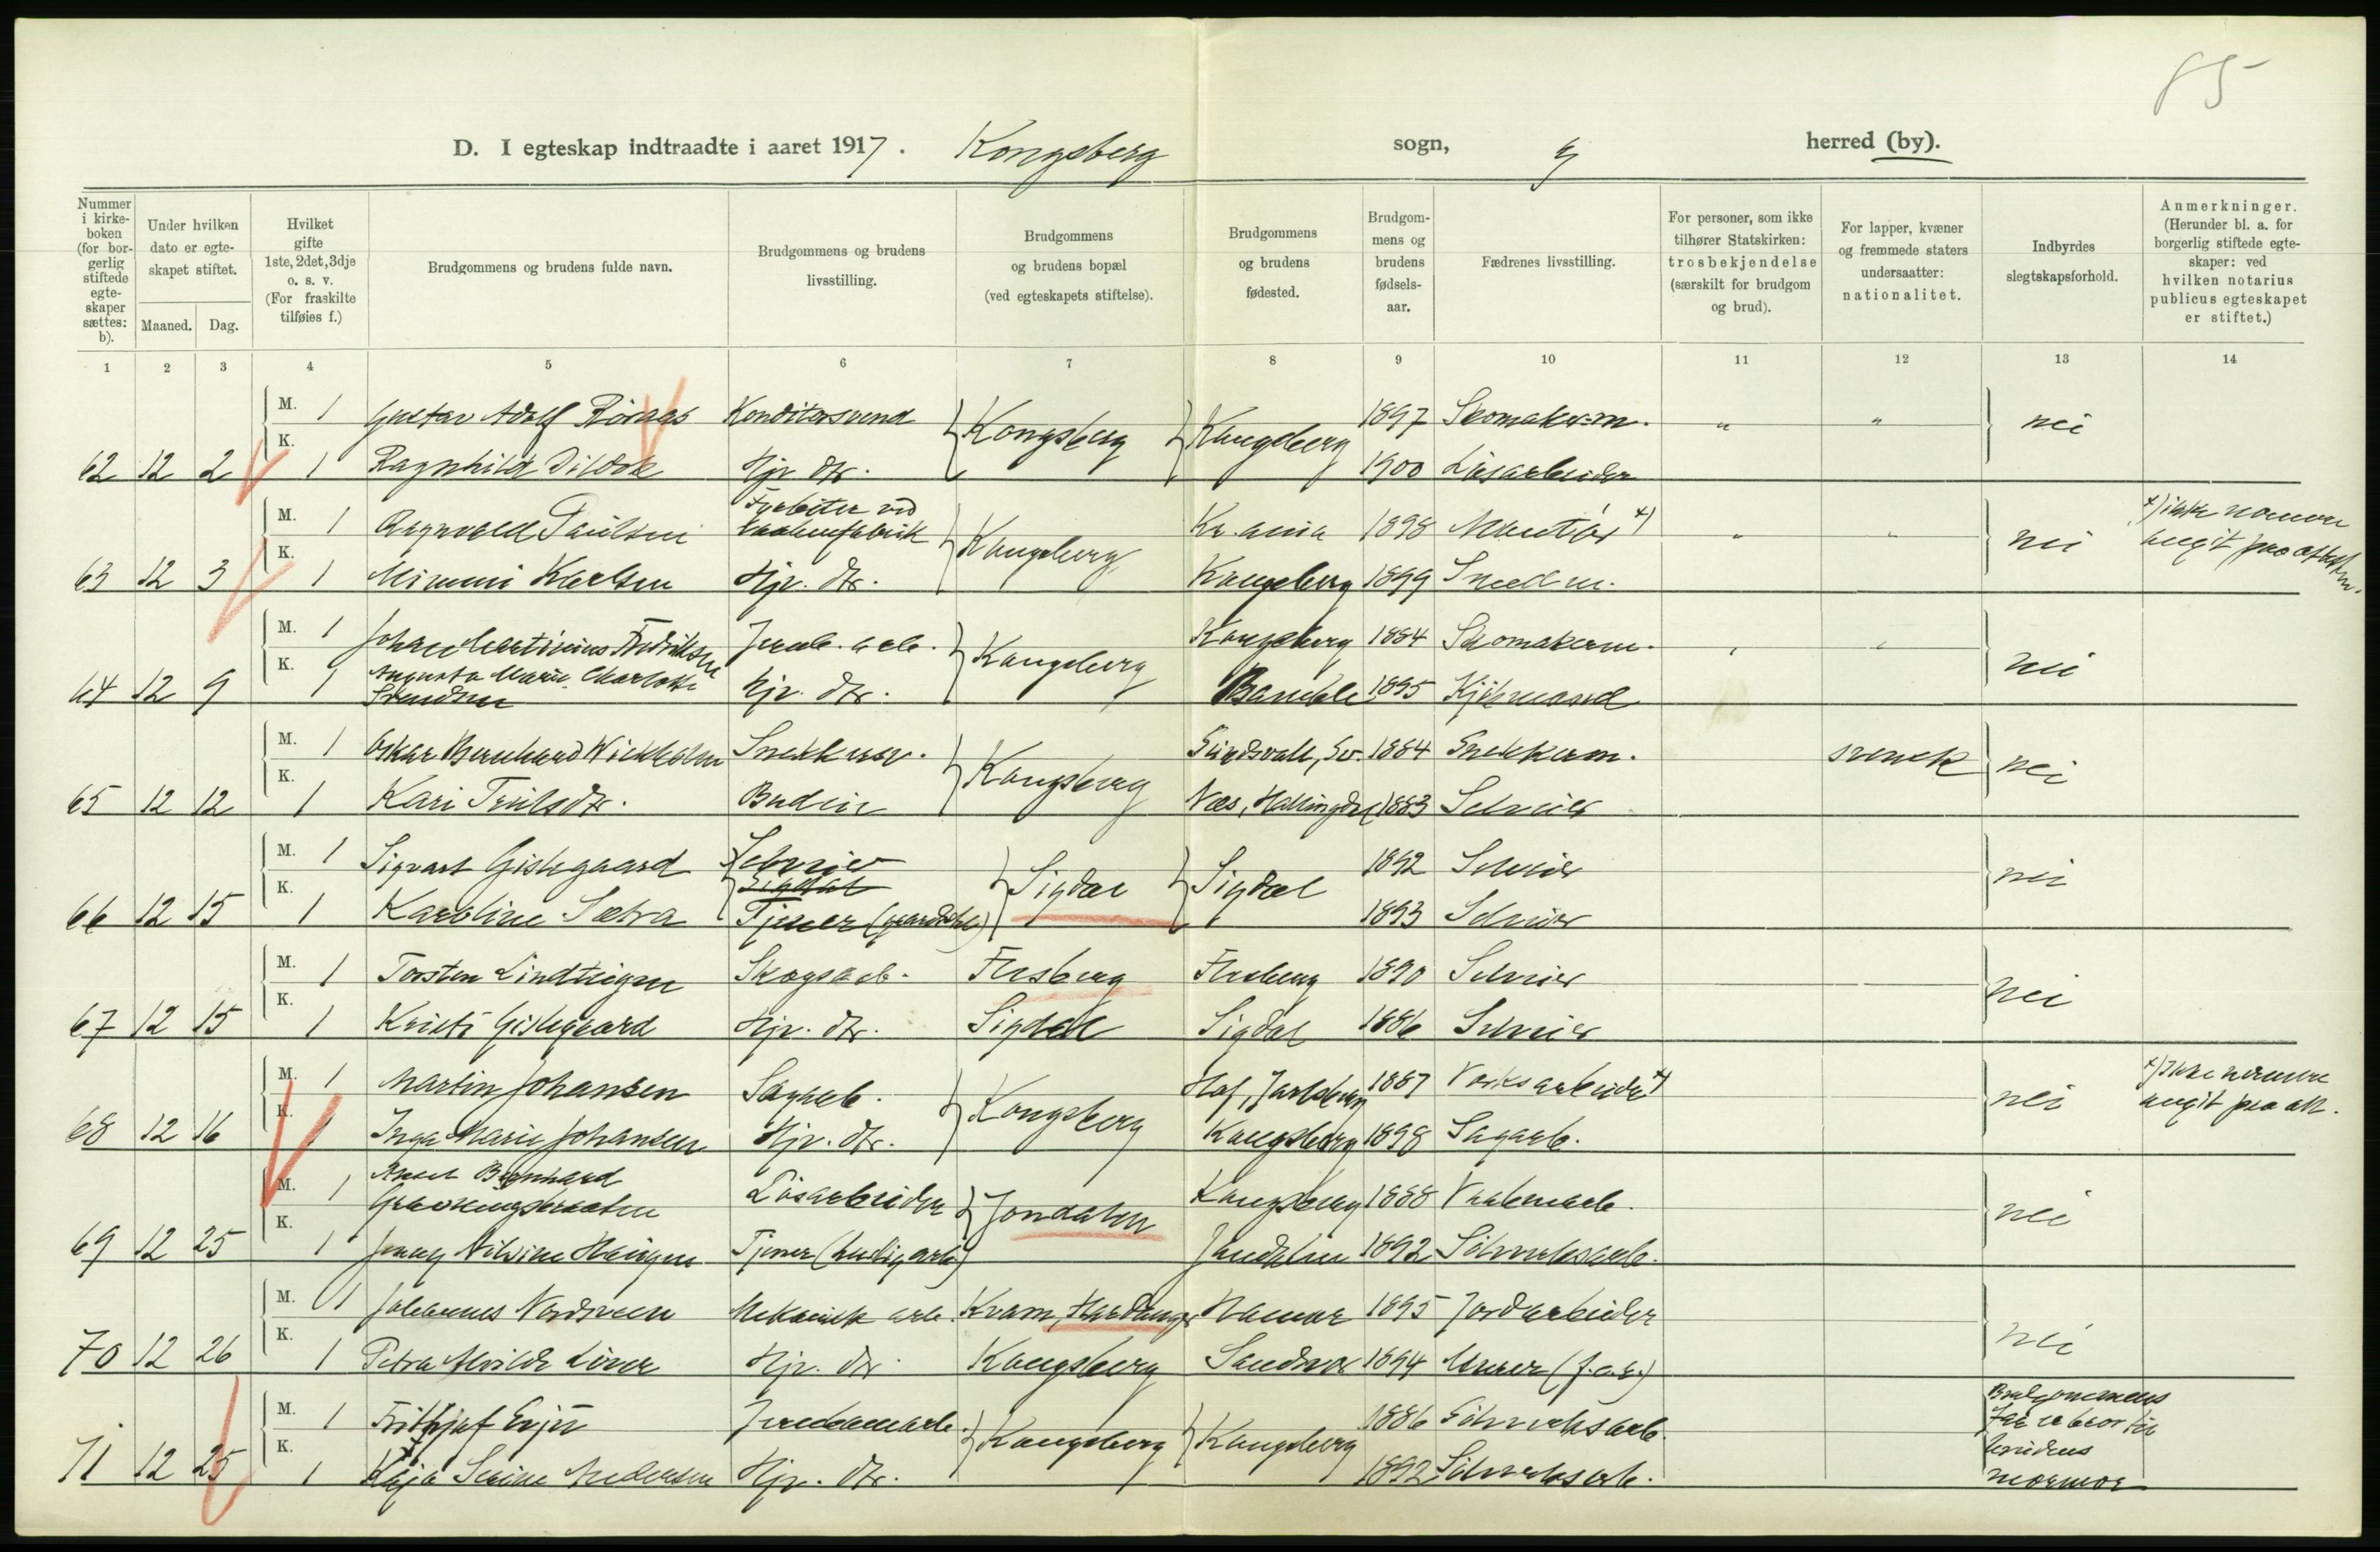 85
D. I egteskap indtraadte i aaret 1917. Kongsberg sogn, herred (by).
Nummer i kirkeboken (for borgerlig stiftede egteskaper sættes: b).
Under hvilken dato er egteskapet stiftet.
Maaned. Dag.
Hvilket gifte 1ste, 2det, 3dje o. s. v. (For fraskilte tilføies f.)
Brudgommens og brudens fulde navn.
Brudgommens og brudens livsstilling.
Brudgommens og brudens bopæl (ved egteskapets stiftelse).
Brudgommens og brudens fødested.
Brudgommens og brudens fødselsaar.
Fædrenes livsstilling.
For personer, som ikke tilhører Statskirken: trosbekjendelse (særskilt for brudgom og brud).
For lapper, kvæner og fremmede staters undersaatter: nationalitet.
Indbyrdes slegtskapsforhold.
Anmerkninger. (Herunder bl. a. for borgerlig stiftede egteskaper: ved hvilken notarius publicus egteskapet er stiftet.)
1 2 3 4 5 6 7 8 9 10 11 12 13 14
M. 1 Gustav Adolf Konditorsvend Kongsberg Kongsberg 1897 Skomakerm. " " nei
62 12 2 K. 1 Ragnhild Hjv. dtr. 1900 Løsarbeider
M. 1 Ragnvald Paulsen Fyrbøter ved vaabenfabrik Kongsberg Kr.ania 1898 Montør x) " " nei x) ikke nærmere angit paa attesten.
63 12 3 K. 1 Mimmi Karlsen Hjv. dtr. Kongsberg 1899 Smedm.
M. 1 Johan Martinius Fredriksen Jernb. arb. Kongsberg Kongsberg 1884 Skomakerm. " " nei
64 12 9 K. 1 Augusta Marie Charlotte Svendsen Hjv. dtr. Bamble 1895 Kjøbmand
M. 1 Oskar Bernhard Wickholm Snekkersv. Kongsberg Sundsvall, Sv. 1884 Snekkerm. svensk nei
65 12 12 K. 1 Kari Trulsdtr. Budeie Nes, Hallingdal 1883 Selveier
M. 1 Sigvart Gislegaard Selveier Sigdal Sigdal 1892 Selveier nei
Sigdal
66 12 15 K. 1 Karoline Sætra Tjener (gaardsarb.) 1893 Selveier
M. 1 Torsten Lindteigen Skogsarb. Flesberg Flesberg 1890 Selveier nei
67 12 15 K. 1 Kristi Gislegaard Hjv. dtr. Sigdal Sigdal 1886 Selveier
M. 1 Martin Johansen Sagarb. Kongsberg Hof, Jarlsberg 1887 Verksarbeider x) nei x) Ikke nærmere angit paa att.
68 12 16 K. 1 Inga Marie Johansen Hjv. dtr. Kongsberg 1898 Sagarb.
M. 1 Bernhard Løsarbeider Jondalen Kongsberg 1888 Vaabenarb. nei
69 12 25 K. 1 Jenny Nilsine Haugen Tjener (huslig arb.) Jondalen 1892 Sølvverksarb.
M. 1 Johannes Nordsveen Mekanisk arb. Kvam, Hardanger Hamar 1895 Jordarbeider nei
70 12 26 K. 1 Petra Alvilde Hjv. dtr. Kongsberg 1894 Murer
M. 1 Frithjof Kongsberg Kongsberg 1886 Sølvverksarb. Brudgommens far er bror til brudens mormor
71 12 25 K. 1 Kaja Serine Andersen Hjv. dtr. 1892 Sølvverksarb.